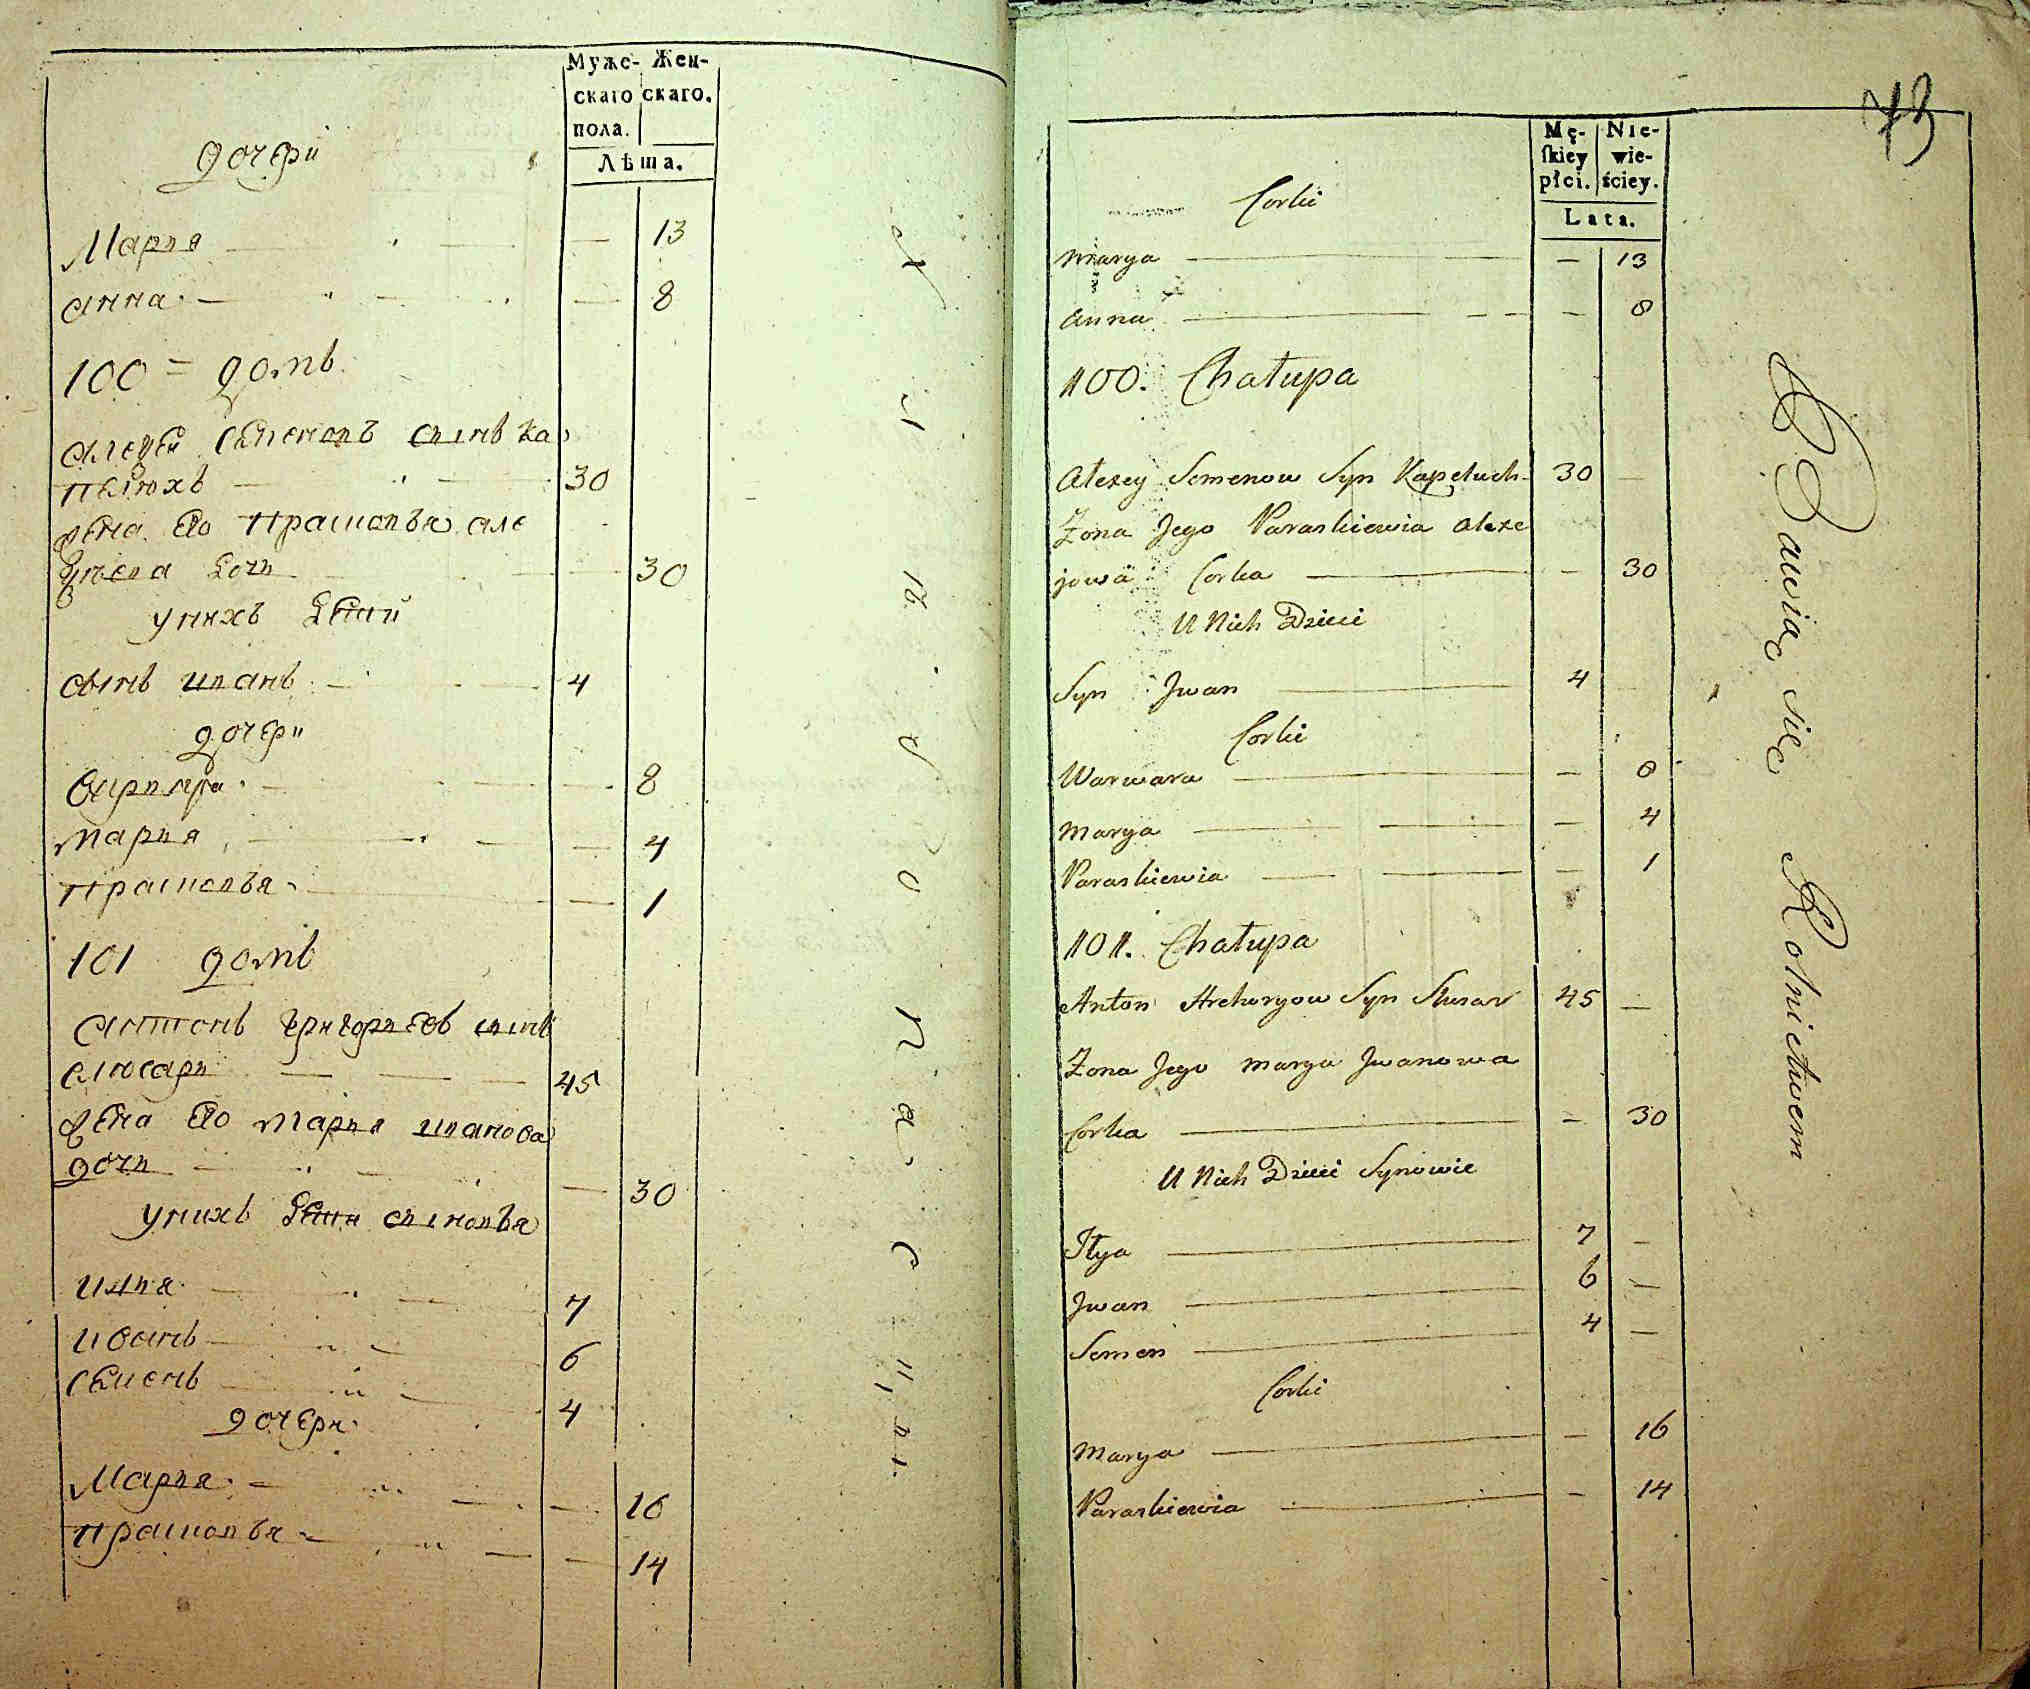 Мужс- Жен-
скаго скаго.
пола.
Лѣта.
дочери
Мария — — 13
анна — — 8
100 = домъ
алеѯеи семеновъ сынъ ка
пелюхъ — 30
жена его прасковья але
ѯеева дочь — — 30
у нихъ дети
сынъ иванъ — 4
дочери
варвара — — 8
мария — — 4
прасковья — — 1
101 домъ
антонъ григорьевъ сынъ
слюсарь — 45
жена его мария иванова
дочь — — 30
у нихъ дети сыновья
илия — 7
иванъ — 6
семенъ — 4
дочери
Мария — — 16
прасковья — — 14
73
Mę- Nie-
ſkiey wie-
płci. ściey.
Lata.
Corki
Marya — — 13
Anna — — 8
100. Chałupa
Alexey Semenow Syn Kapeluch 30 —
Zona Jego Paraskiewia Alexe
jowa Corka — — 30
U Nich Dzieci
Syn Jwan — 4
Corki
Warwara — — 8
Marya — — 4
Paraskiewia — — 1
101. Chałupa
Anton Hrehoryow Syn Slusar 45 —
Zona Jego Marya Jwanowa
Corka — — 30
U Nich Dzieci Synowie
Ilya — 7 —
Jwan — 6 —
Semen — 4 —
Corki
Marya — — 16
Paraskiewia — — 14
Bawią się Rolnictwem